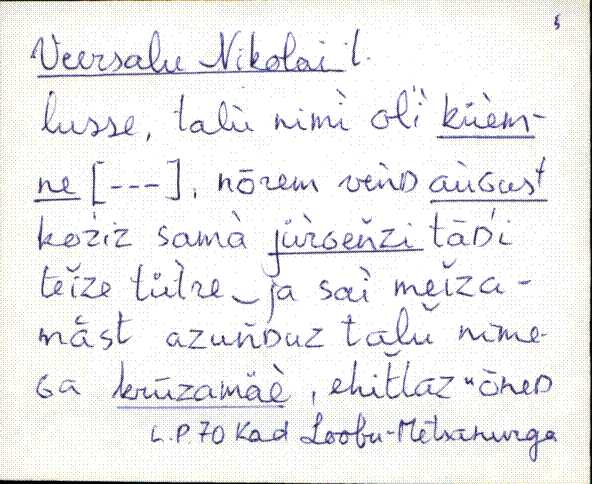 5
Veersalu Nikolai l.
lusse, talù nimì olì küèm-
ne [---], nōrem veǹD aùGust
koziz samà jürGeǹzi tāDi
teĭze tütre ja saì meĭza-
mǎst azuǹDuz talŭ nime-
Ga krūzamäè, ehiťlaz ōneD
L.P. 70 Kad Loobu-Metsanurga